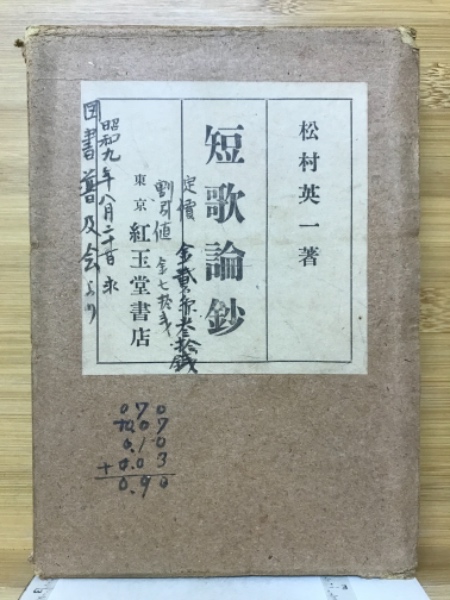 松村英一著
短歌論鈔
定價 金貳円参拾銭
割引値 金七拾銭
東京 紅玉堂書店
昭和九年八月二十日求
図書普及会より
070
+0.07
0.10
+0.03
0.90